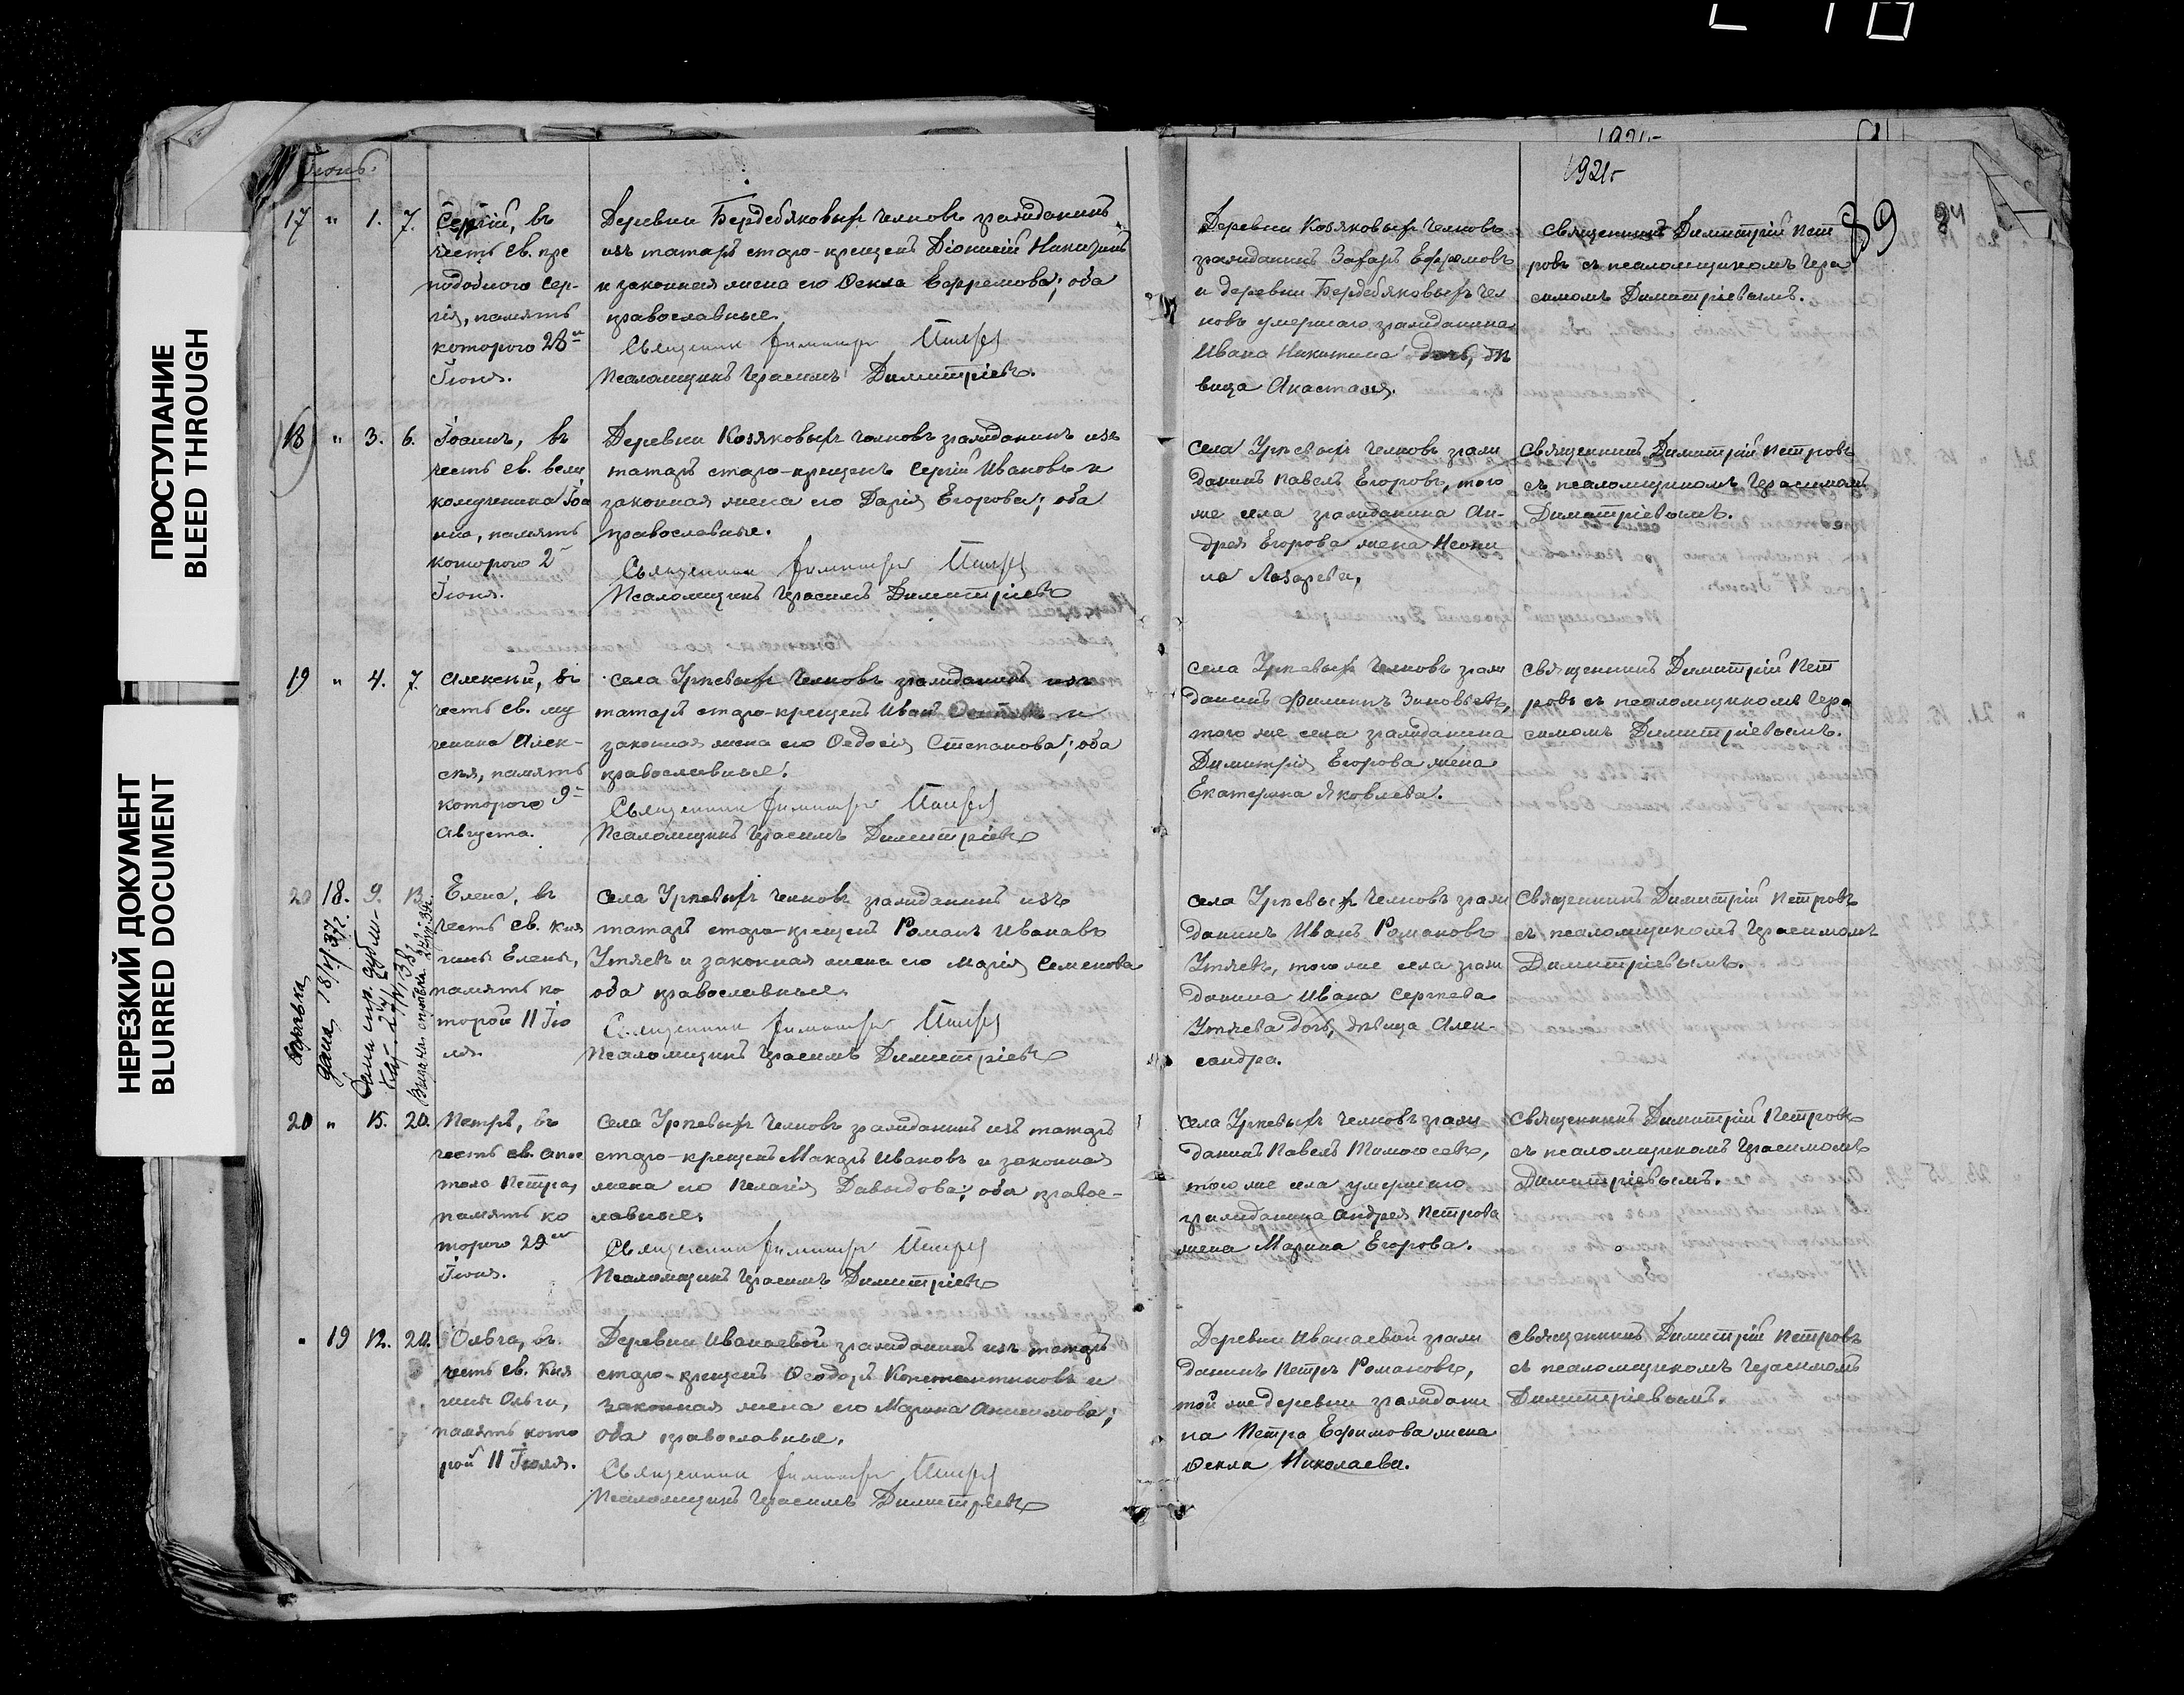 ПРОСТУПАНИЕ
BLEED THROUGH
НЕРЕЗКИЙ ДОКУМЕНТ
BLURRED DOCUMENT
Іюнь.
1921 г
89
84
17 " 1. 7.
Сергій, въ
честь св. пре
подобнаго Сер-
гія, память
котораго 28го
Іюня.
Деревни Бердебяковыхъ Челновъ гражданинъ
изъ татаръ старо-крещенъ Діонисій Никитинъ
и законная жена его Ѳекла Ефремова; оба
православные.
Священникъ Димитрій Петровъ
Псаломщикъ Герасимъ Димитріевъ.
Деревни Козяковыхъ Челновъ
гражданинъ Захаръ Ефремовъ
и деревни Бердебяковыхъ Чел
новъ умершаго гражданина
Ивана Никитина дочь, дѣ
вица Анастасія.
Священникъ Димитрій Пет
ровъ съ псаломщикомъ Гера
симомъ Димитріевымъ.
18 " 3. 6.
Іоаннъ, въ
честь св. вели
комученика Іоа
нна, память
котораго 2
Іюня.
Деревни Козяковыхъ Челновъ гражданинъ изъ
татаръ старо-крещенъ Сергій Ивановъ и
законная жена его Дарія Егорова; оба
православные.
Священникъ Димитрій Петровъ
Псаломщикъ Герасимъ Димитріевъ
Села Урѣевыхъ Челновъ граж
данинъ Павелъ Егоровъ, того
же села гражданина Ан-
дрея Егорова жена Неони
ла Лазарева.
Священникъ Димитрій Петровъ
съ псаломщикомъ Герасимомъ
Димитріевымъ.
19 " 4. 7.
Алексій, въ
честь св. му
ченика Алек-
сія, память
котораго 9
Августа.
Села Урѣевыхъ Челновъ гражданинъ изъ
татаръ старо-крещенъ Иванъ и
законная жена его Ѳедосія Степанова; оба
православные.
Священникъ Димитрій Петровъ
Псаломщикъ Герасимъ Димитріевъ
Села Урѣевыхъ Челновъ граж
данинъ Филиппъ Зиновьевъ,
того же села гражданина
Димитрія Егорова жена
Екатерина Яковлева.
Священникъ Димитрій Пет
ровъ съ псаломщикомъ Гера
симомъ Димитріевымъ.
20 18. 9. 13.
дана 18/V 37 г.
Елена, въ
честь св. кня
гини Елены,
память ко
торой 11 Ію
ля.
Села Урѣевыхъ Челновъ гражданинъ изъ
татаръ старо-крещенъ Романъ Ивановъ
Утяевъ и законная жена его Марія Семенова
оба православные.
Священникъ Димитрій Петровъ
Псаломщикъ Герасимъ Димитріевъ
Села Урѣевыхъ Челновъ граж
данинъ Иванъ Романовъ
Утяевъ, того же села граж
данина Ивана Сергѣева
Утяева дочь, дѣвица Алек-
сандра.
Священникъ Димитрій Петровъ
съ псаломщикомъ Герасимомъ
Димитріевымъ.
20 " 15. 20.
Петръ, въ
честь св. апос
тола Петра,
память ко
тораго 29го
Іюня.
Села Урѣевыхъ Челновъ гражданинъ изъ татаръ
старо-крещенъ Макаръ Ивановъ и законная
жена его Пелагія Давыдова; оба правос-
лавные.
Священникъ Димитрій Петровъ
Псаломщикъ Герасимъ Димитріевъ
Села Урѣевыхъ Челновъ граж
данинъ Павелъ Тимоѳеевъ,
того же села умершаго
гражданина Андрея Петрова
жена Марина Егорова.
Священникъ Димитрій Петровъ
съ псаломщикомъ Герасимомъ
Димитріевымъ.
" 19 12. 20.
Ольга, въ
честь св. кня
гини Ольги,
память кото
рой 11 Іюля.
Деревни Иванаевой гражданинъ изъ татаръ
старо-крещенъ Ѳеодоръ Константиновъ и
законная жена его Марина Анисимова;
оба православные.
Священникъ Димитрій Петровъ
Псаломщикъ Герасимъ Димитріевъ
Деревни Иванаевой граж
данинъ Петръ Романовъ,
той же деревни граждани
на Петра Ефимова жена
Ѳекла Николаева.
Священникъ Димитрій Петровъ
съ псаломщикомъ Герасимомъ
Димитріевымъ.